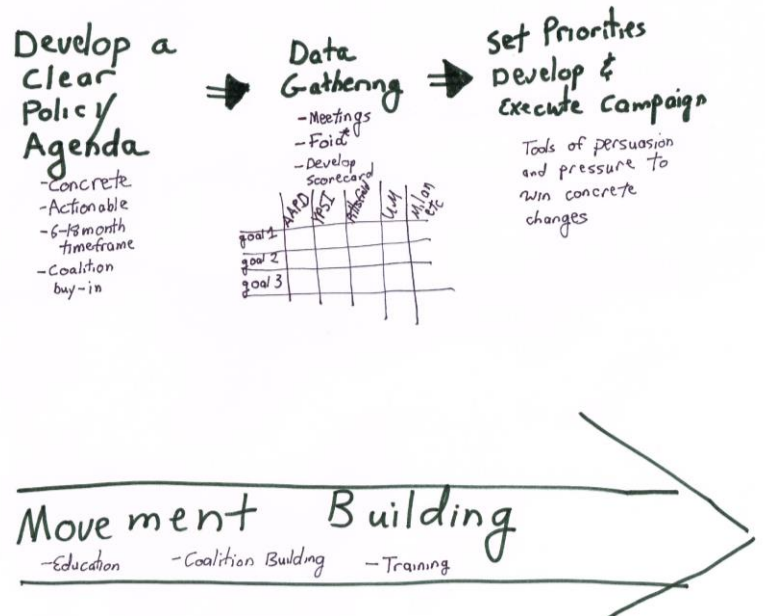 Develop a
Clear
Policy
Agenda
-Concrete
-Actionable
-6-18 month
timeframe
-Coalition
buy-in
Data
Gathering
-Meetings
-Foia*
-Develop
Scorecard
AAPD
YPSI
Pittsfield
UM
Milan
etc
goal 1
goal 2
goal 3
Set Priorities
Develop &
Execute Campaign
Tools of persuasion
and pressure to
win concrete
changes
Movement Building
-Education -Coalition Building -Training